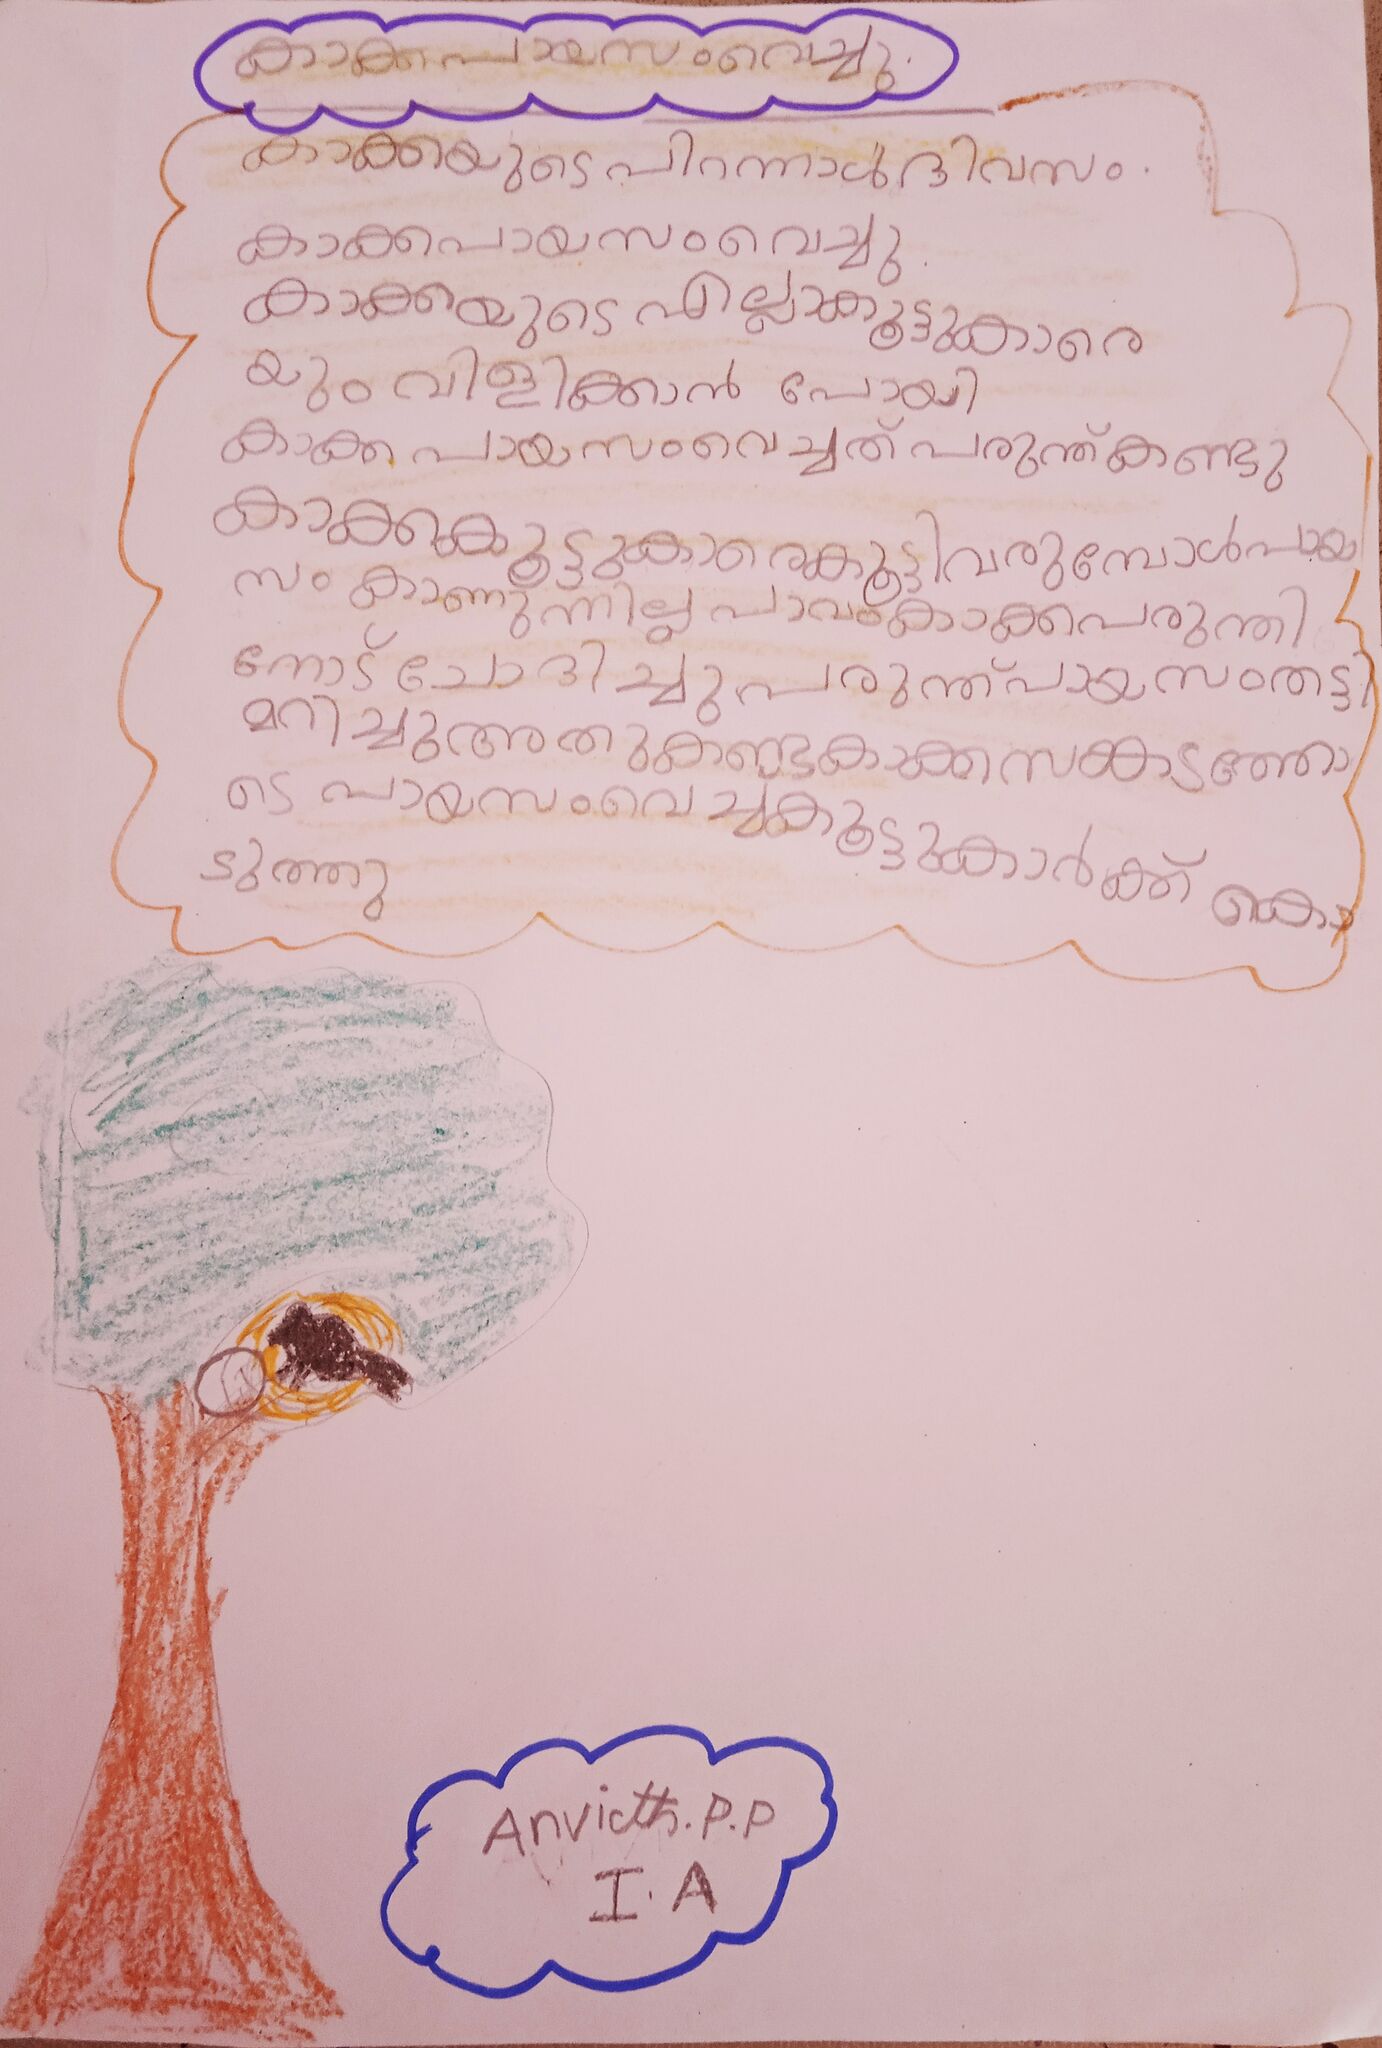 കാക്ക പായസം വെച്ചു.
കാക്കയുടെ പിറന്നാൾ ദിവസം.
കാക്ക പായസം വെച്ചു.
കാക്കയുടെ എല്ലാ കൂട്ടുകാരെ
യും വിളിക്കാൻ പോയി
കാക്ക പായസം വെച്ചത് പരുന്ത് കണ്ടു
കാക്ക കൂട്ടുകാരെ കൂട്ടി വരുമ്പോൾ പായ
സം കാണുന്നില്ല പാവം കാക്ക പരുന്തി
നോട് ചോദിച്ചു പരുന്ത് പായസം തട്ടി
മറിച്ചു അതു കണ്ട കാക്ക സങ്കടത്തോ
ടെ പായസം വെച്ച് കൂട്ടുകാർക്ക് കൊ
ടുത്തു
Anvicth.P.P
I.A